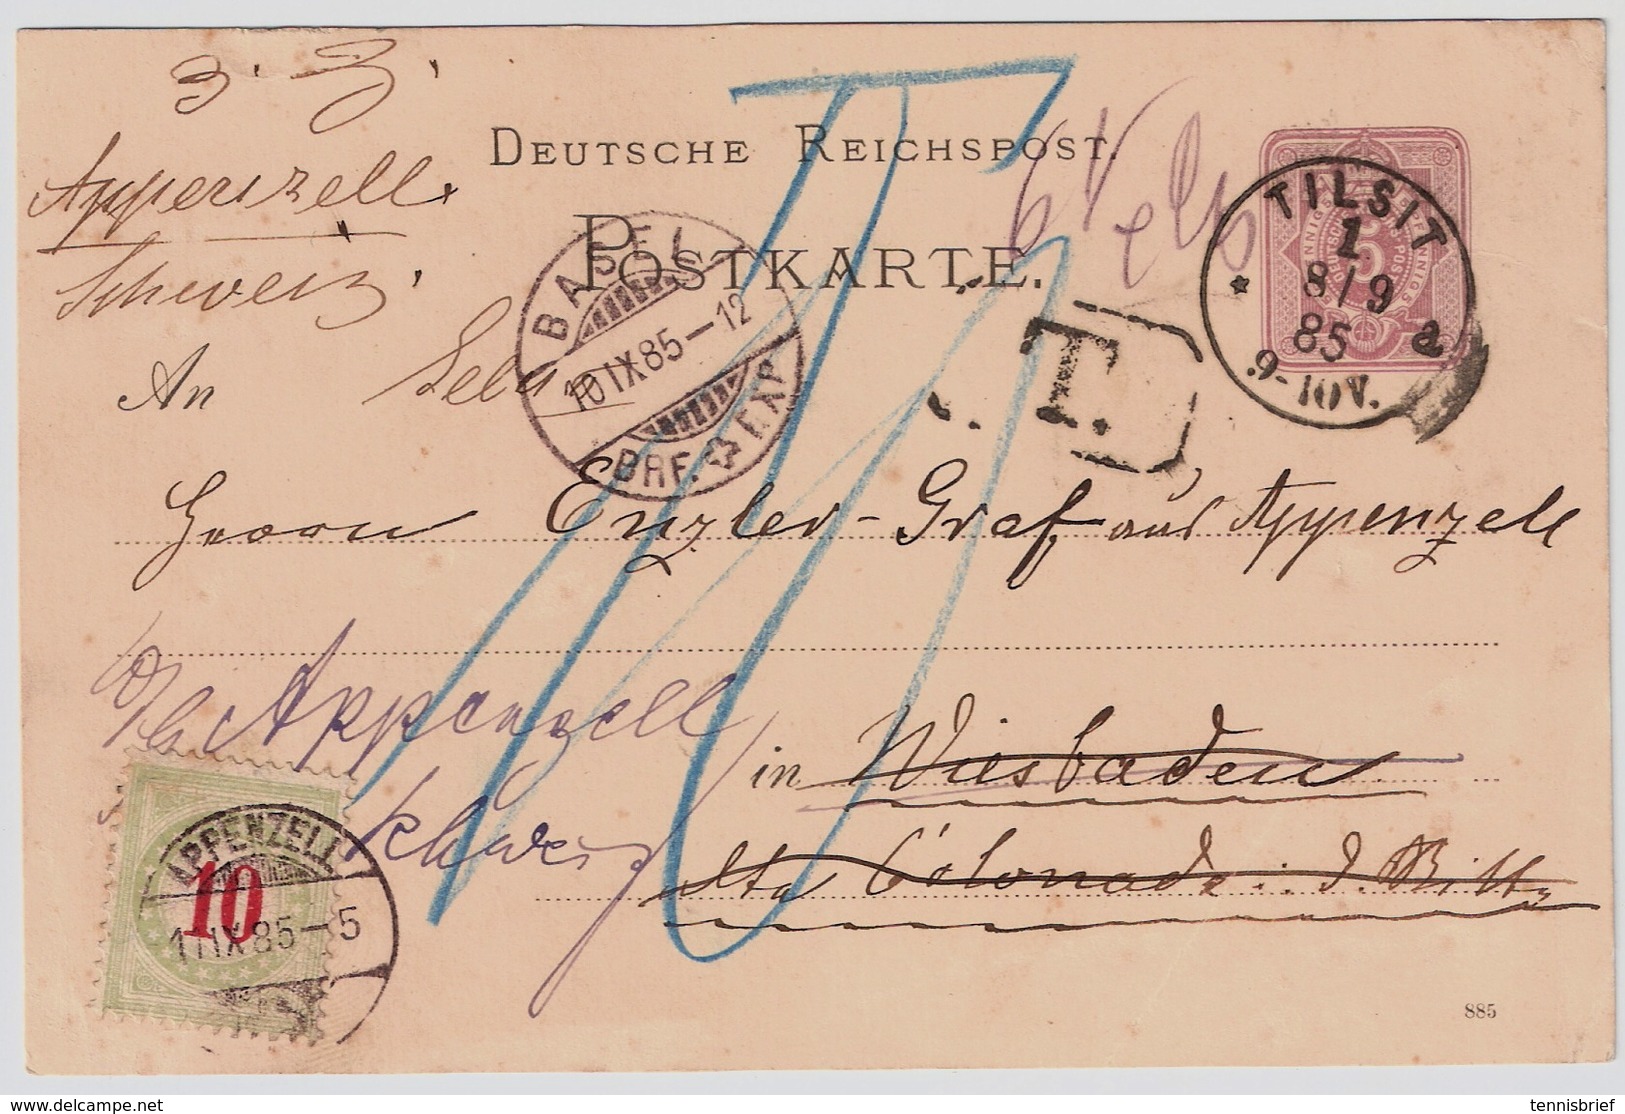 z. Z.
Appenzell
Schweiz
DEUTSCHE REICHSPOST.
POSTKARTE.
TILSIT
1
8/9
85 a
9-10V.
5
BASEL
10 IX 85-12
BRF. EXP.
T.
An
Herrn Enzler-Graf aus Appenzell
Appenzell
Schweiz
in Wiesbaden
Alte Colonade
APPENZELL
10
11 IX 85-5
885
tennisbrief